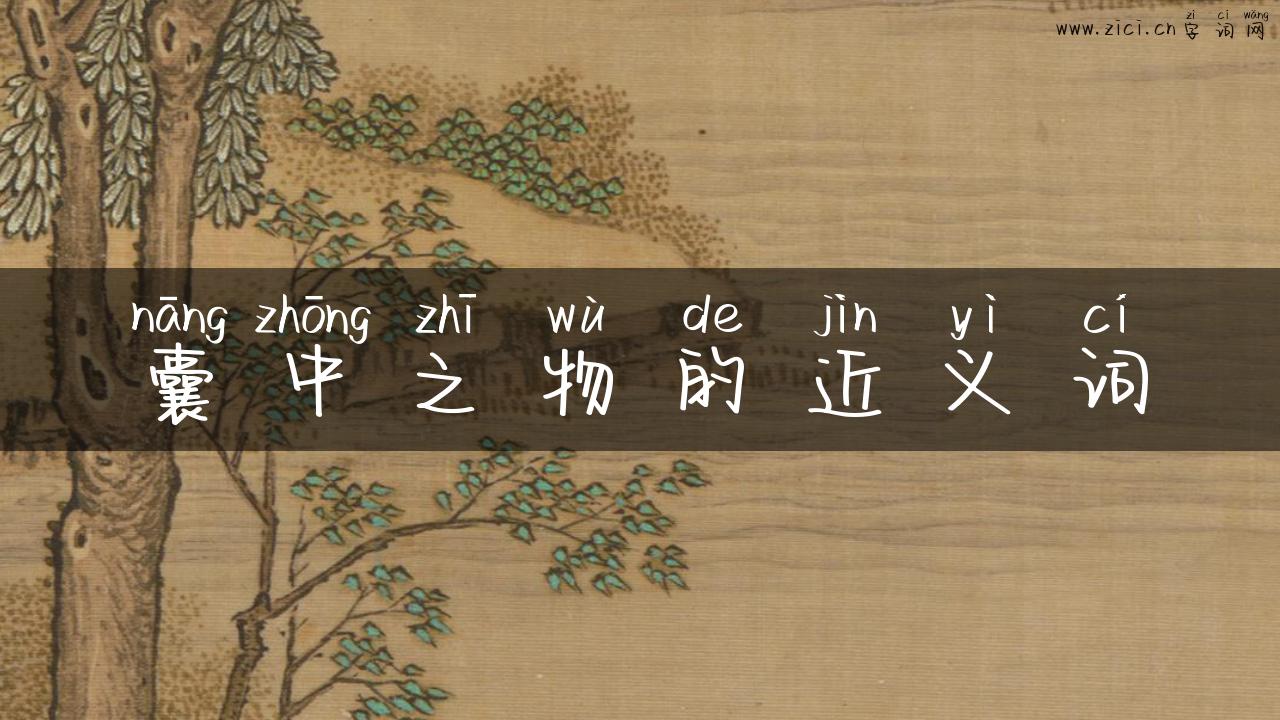 zì cí wǎng
www.zici.cn 字词网
nāng zhōng zhī wù de jìn yì cí
囊中之物的近义词